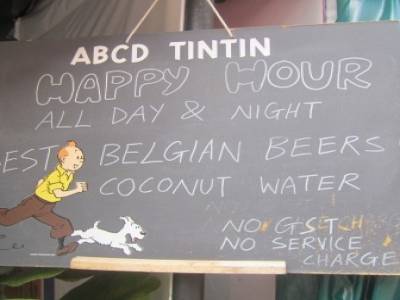 ABCD TINTIN
HAPPY HOUR
ALL DAY & NIGHT
EST BELGIAN BEERS
COCONUT WATER
NO GST
NO SERVICE
CHARGE